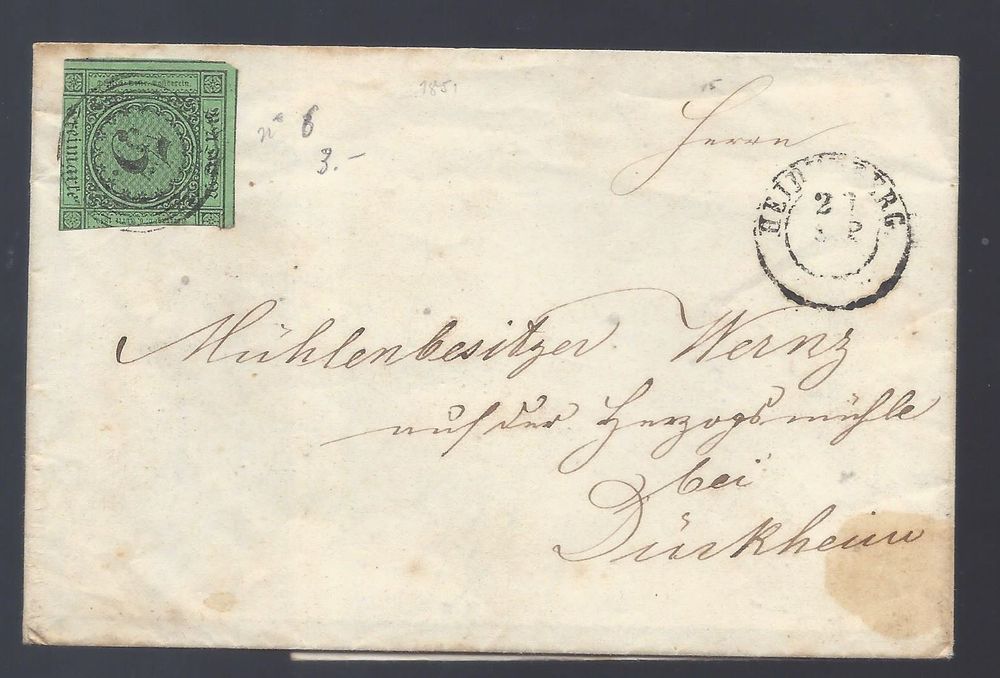 1851
n° 6
3.-
Herrn
HEIDELBERG
Mühlenbesitzer Wernz
auf der Herzogsmühle
bei
Dürkheim
Freimarke